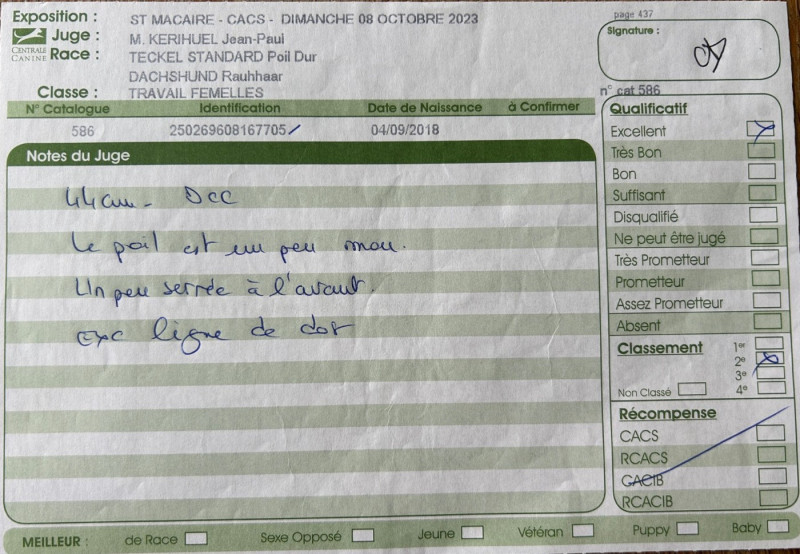 Exposition : ST MACAIRE - CACS - DIMANCHE 08 OCTOBRE 2023
page 437
CENTRALE CANINE
Juge : M. KERIHUEL Jean-Paul
Signature :
Race : TECKEL STANDARD Poil Dur
DACHSHUND Rauhhaar
Classe : TRAVAIL FEMELLES
n° cat 586
N° Catalogue Identification Date de Naissance à Confirmer
586 250269608167705 04/09/2018
Notes du Juge
44cm - DCC
Le poil est un peu mou.
Un peu serrée à l'avant.
exc ligne de dos
Qualificatif
Excellent
Très Bon
Bon
Suffisant
Disqualifié
Ne peut être jugé
Très Prometteur
Prometteur
Assez Prometteur
Absent
Classement
1er
2e
3e
Non Classé 4e
Récompense
CACS
RCACS
CACIB
RCACIB
MEILLEUR : de Race Sexe Opposé Jeune Vétéran Puppy Baby